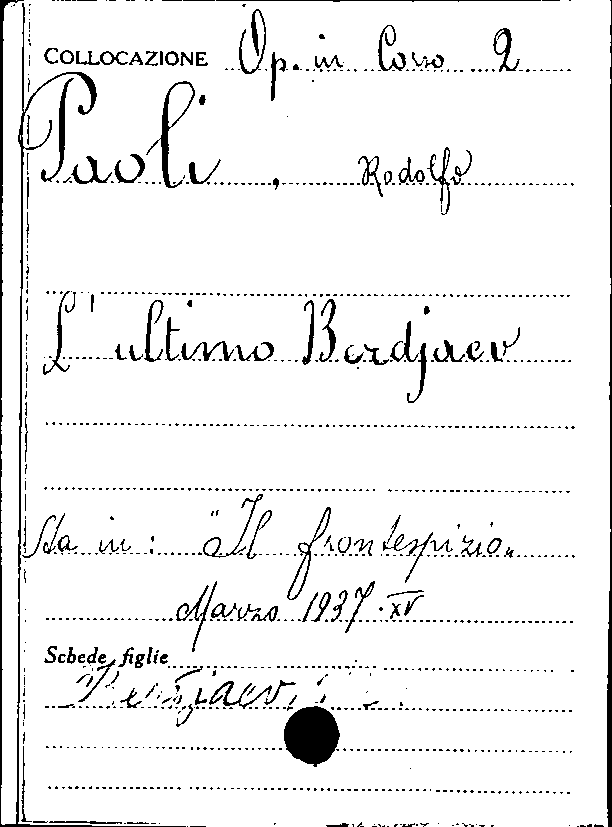 COLLOCAZIONE Op. in Corso 2
Paoli, Rodolfo
L'ultimo Berdjaev
Sta in: "Il frontespizio"
Marzo 1937-XV
Schede figlie
Berdjaev,